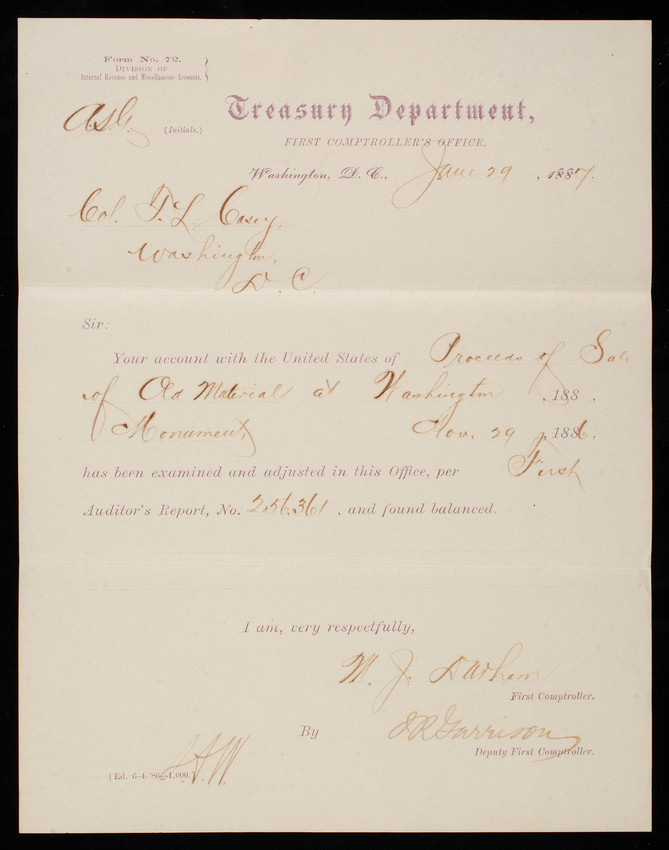 Form No. 72.
Division of
Internal Revenue and Miscellaneous Accounts.
(Initials.)
Treasury Department,
FIRST COMPTROLLER'S OFFICE,
Washington, D. C., Jan 29, 1887.
Col. T. L. Casey,
Washington,
D. C.
Sir:
Your account with the United States of Proceeds of Sale
of Old Material at Washington, 188 ,
Monument, Nov. 29, 1886,
has been examined and adjusted in this Office, per First
Auditor's Report, No. 256,361, and found balanced.
I am, very respectfully,
M. J. Durham
First Comptroller.
By J R Garrison
Deputy First Comptroller.
(Ed. 6-4-'86—1,000.)